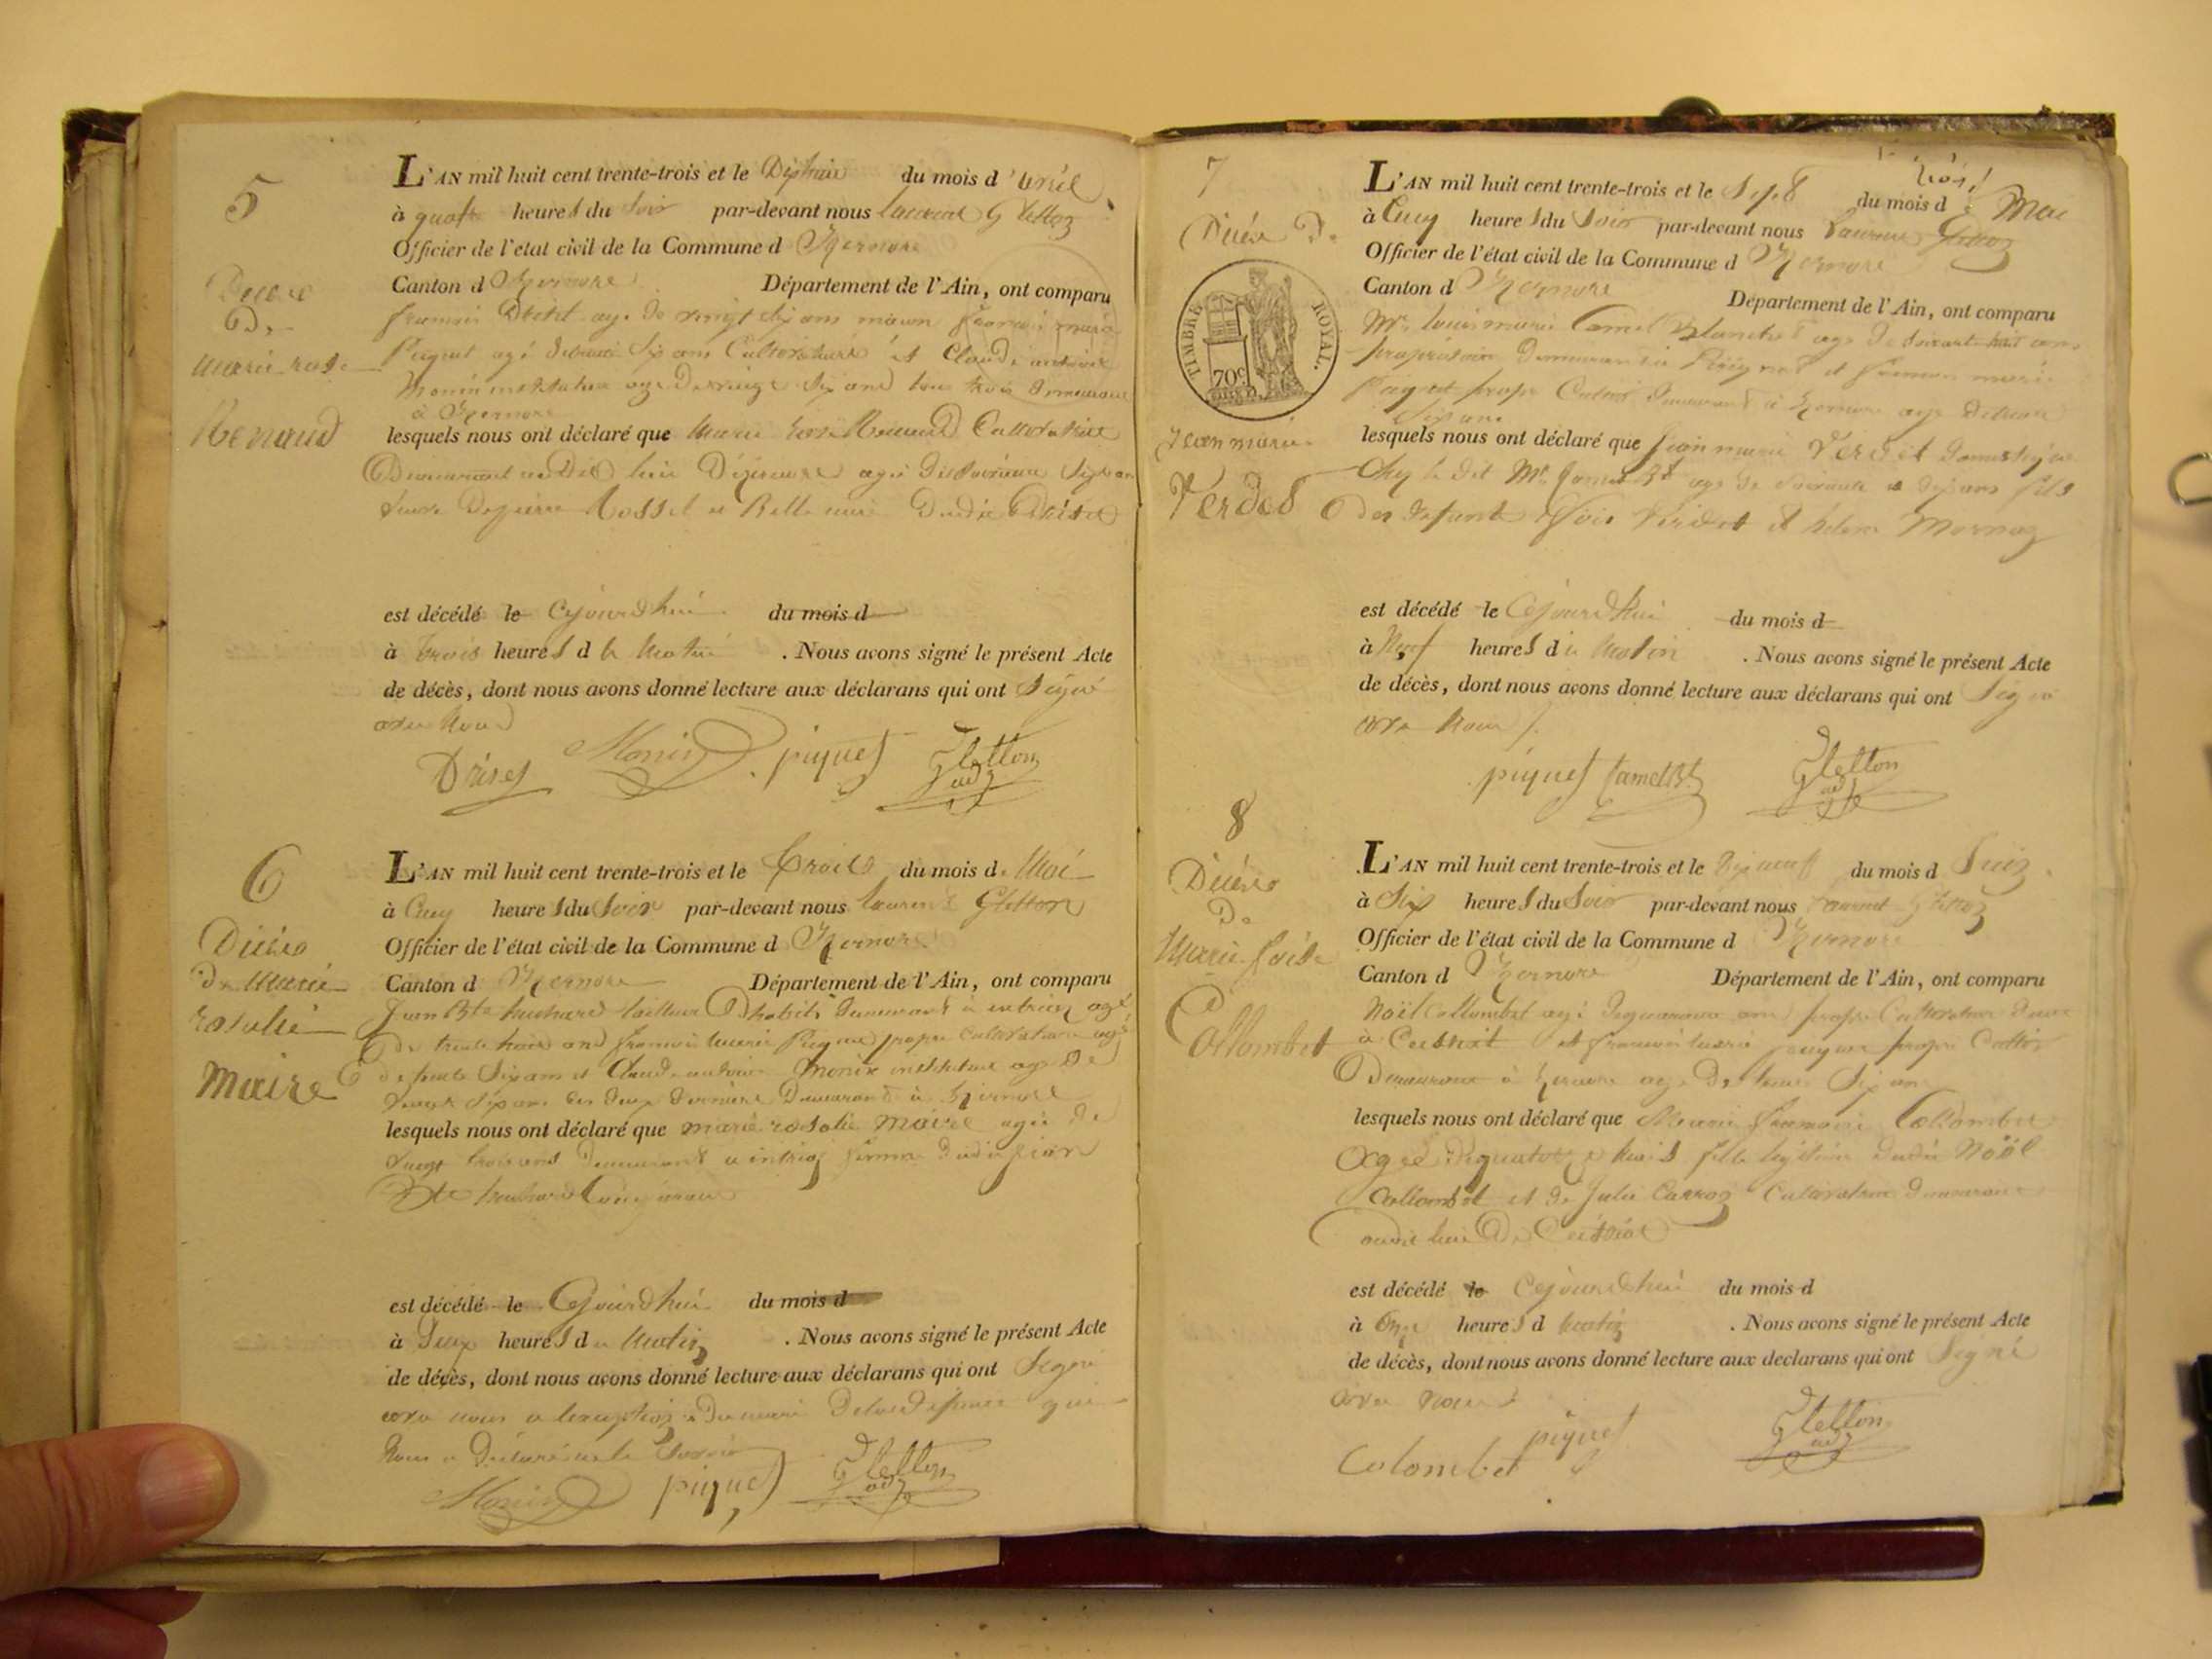 5
Décès
De
Marie rose
Renaud
L'AN mil huit cent trente-trois et le du mois d'avril
à quatre heures du soir par-devant nous Laurent Gletton
Officier de l'etat civil de la Commune d Izernore
Canton d Izernore Département de l'Ain, ont comparu
agé de vingt six ans maçon françois marie
Piquet agé de trente six ans Cultivateur et Claude antoine
Monin instituteur agé de vingt six ans tous trois demeurant
à Izernore
lesquels nous ont déclaré que Marie rose Renaud Cultivatrice
Demeurant audit lieu agée de soixante sept ans
veuve De pierre Rosset et Belle mère Dudit
est décédé le Cejourd'hui du mois d
à trois heures d u Matin . Nous avons signé le présent Acte
de décès, dont nous avons donné lecture aux déclarans qui ont Signé
avec Nous
Monin piquet Gletton
adj
6
Décès
De Marie
rosalie
Maire
L'AN mil huit cent trente-trois et le trois du mois d. Mai
à Cinq heures du Soir par-devant nous laurent Gletton
Officier de l'état civil de la Commune d Izernore
Canton d Izernore Département de l'Ain, ont comparu
Jean Bte tailleur D'habits demeurant à agé
De trente trois ans françois marie Piquet propre Cultivateur agé
de trente six ans et Claude antoine Monin instituteur agé De
vingt six ans les deux derniers Demeurant à Izernore
lesquels nous ont déclaré que marie rosalie Maire agée de
vingt trois ans Demeurant à femme dudit jean
Bte
est décédé le Cejourd'hui du mois d
à Deux heures d u Matin . Nous avons signé le présent Acte
de décès, dont nous avons donné lecture aux déclarans qui ont Signé
avec nous a l'exception du mari De la défunte qui
Nous a Déclaré ne le Savoir
Monin piquet Gletton
adj
7
Décès De
TIMBRE ROYAL.
70c
Jean marie
Verdet
L'AN mil huit cent trente-trois et le Sept du mois d Mai
à Cinq heures du Soir par-devant nous Laurent Gletton
Officier de l'état civil de la Commune d Izernore
Canton d Izernore Département de l'Ain, ont comparu
Mr. louis marie Camel Blanchet agé de soixante huit ans
propriétaire demeurant à et françois marie
Piquet propre Cultivr demeurant à Izernore agé De trente
Six ans
lesquels nous ont déclaré que Jean marie Verdet domestique
Chez le dit Mr Camel Bt agé de soixante et dix ans fils
Des défunts et hélène Mornay
est décédé le Cejourd'hui du mois d
à Neuf heures d u Matin . Nous avons signé le présent Acte
de décès, dont nous avons donné lecture aux déclarans qui ont Signé
avec Nous
piquet Camel Bt. Gletton
adj
8
Décès
De
Marie foise
Collombet
L'AN mil huit cent trente-trois et le dix neuf du mois d Juin
à Six heures du Soir par-devant nous Laurent Gletton
Officier de l'état civil de la Commune d Izernore
Canton d Izernore Département de l'Ain, ont comparu
Noël Collombet agé de quarante ans propre Cultivateur
à Ceissiat et françois marie piquet propre Cultivr
Demeurant à Izernore agé De trente Six ans
lesquels nous ont déclaré que Marie françoise Collombet
agée De quatorze mois fille légitime dudit Noël
Collombet et de Julie Carroz Cultivateurs demeurant
audit lieu De Ceissiat
est décédé le Cejourd'hui du mois d
à Onze heures d Matin . Nous avons signé le présent Acte
de décès, dont nous avons donné lecture aux declarans qui ont Signé
avec nous
Colombet piquet Gletton
adj